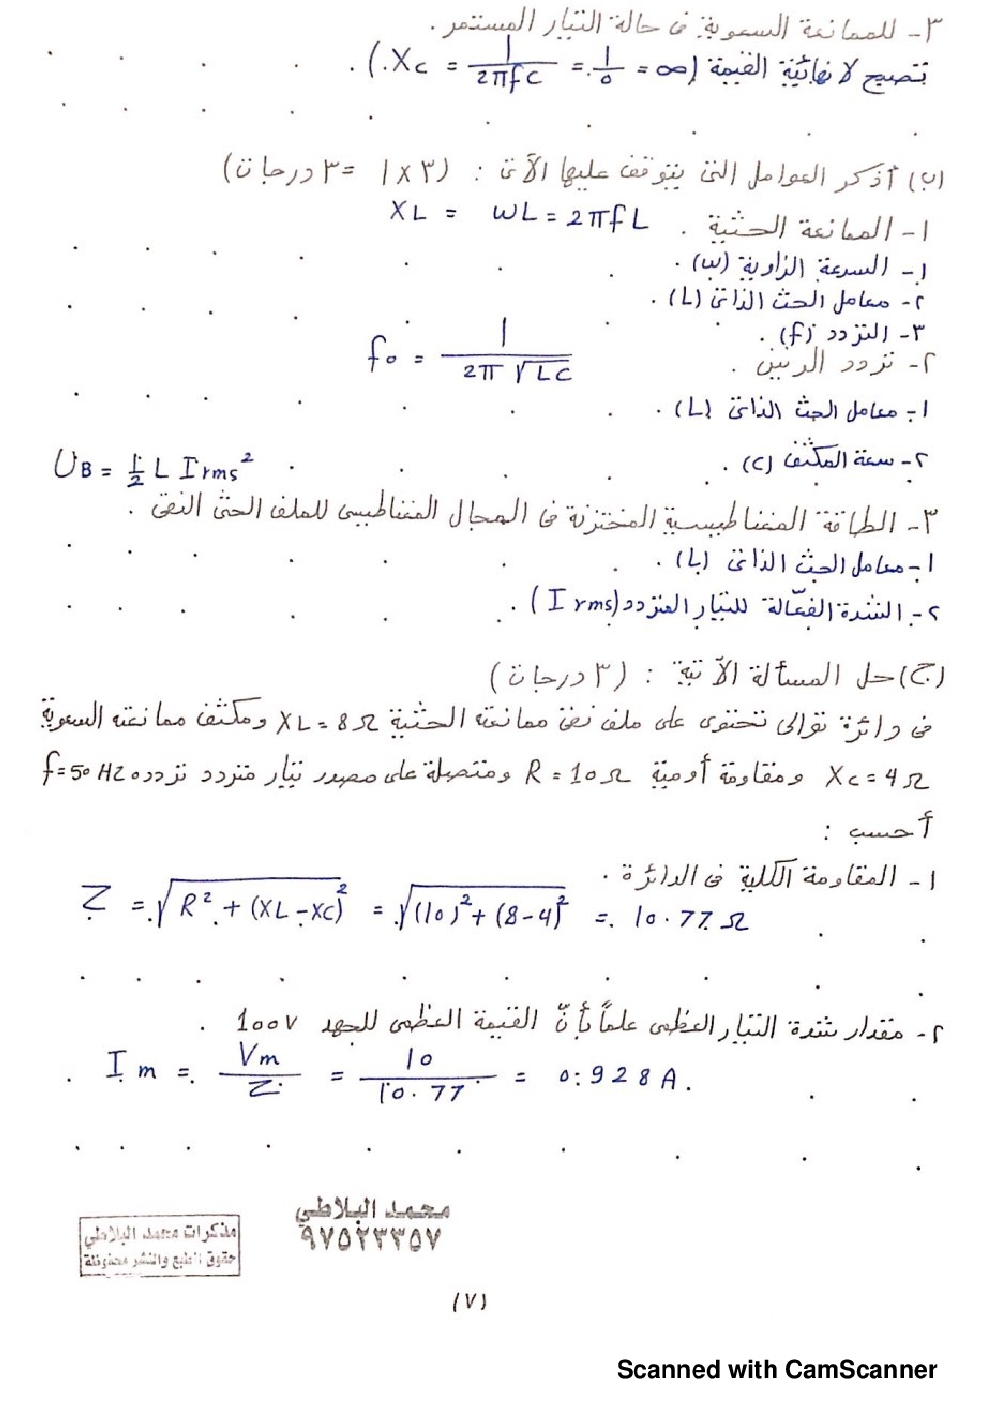 ٣- للممانعة السعوية فى حالة التيار المستمر .
تصبح لا نهائية القيمة (Xc = 1/2πfc = 1/0 = ∞) .
(ب) أذكر العوامل التى يتوقف عليها الآتى : (٣ x ١ = ٣ درجات)
١- الممانعة الحثية . XL = ωL = 2πfL
١- السرعة الزاوية (ω) .
٢- معامل الحث الذاتى (L) .
٣- التردد (f) .
٢- تردد الرنين . fo = 1/2π√LC
١- معامل الحث الذاتى (L) .
٢- سعة المكثف (C) .
UB = 1/2 L Irms²
٣- الطاقة المغناطيسية المختزنة فى المجال المغناطيسى للملف الحثى النقى .
١- معامل الحث الذاتى (L) .
٢- الشدة الفعّالة للتيار المتردد (Irms) .
(ج) حل المسألة الآتية : (٣ درجات)
فى دائرة توالى تحتوى على ملف نقى ممانعته الحثية XL = 8Ω ومكثف ممانعته السعوية
Xc = 4Ω ومقاومة أومية R = 10Ω ومتصلة على مصدر تيار متردد تردده f=50 HZ
أحسب :
١- المقاومة الكلية فى الدائرة .
Z = √R² + (XL - XC)² = √(10)² + (8-4)² = 10.77Ω
٢- مقدار شدة التيار العظمى علماً بأنّ القيمة العظمى للجهد 100V .
Im = Vm/Z = 10/10.77 = 0.928A.
محمد البلاطي
٩٧٥٢٣٣٥٧
مذكرات محمد البلاطي
حقوق الطبع والنشر محفوظة
(٧)
Scanned with CamScanner